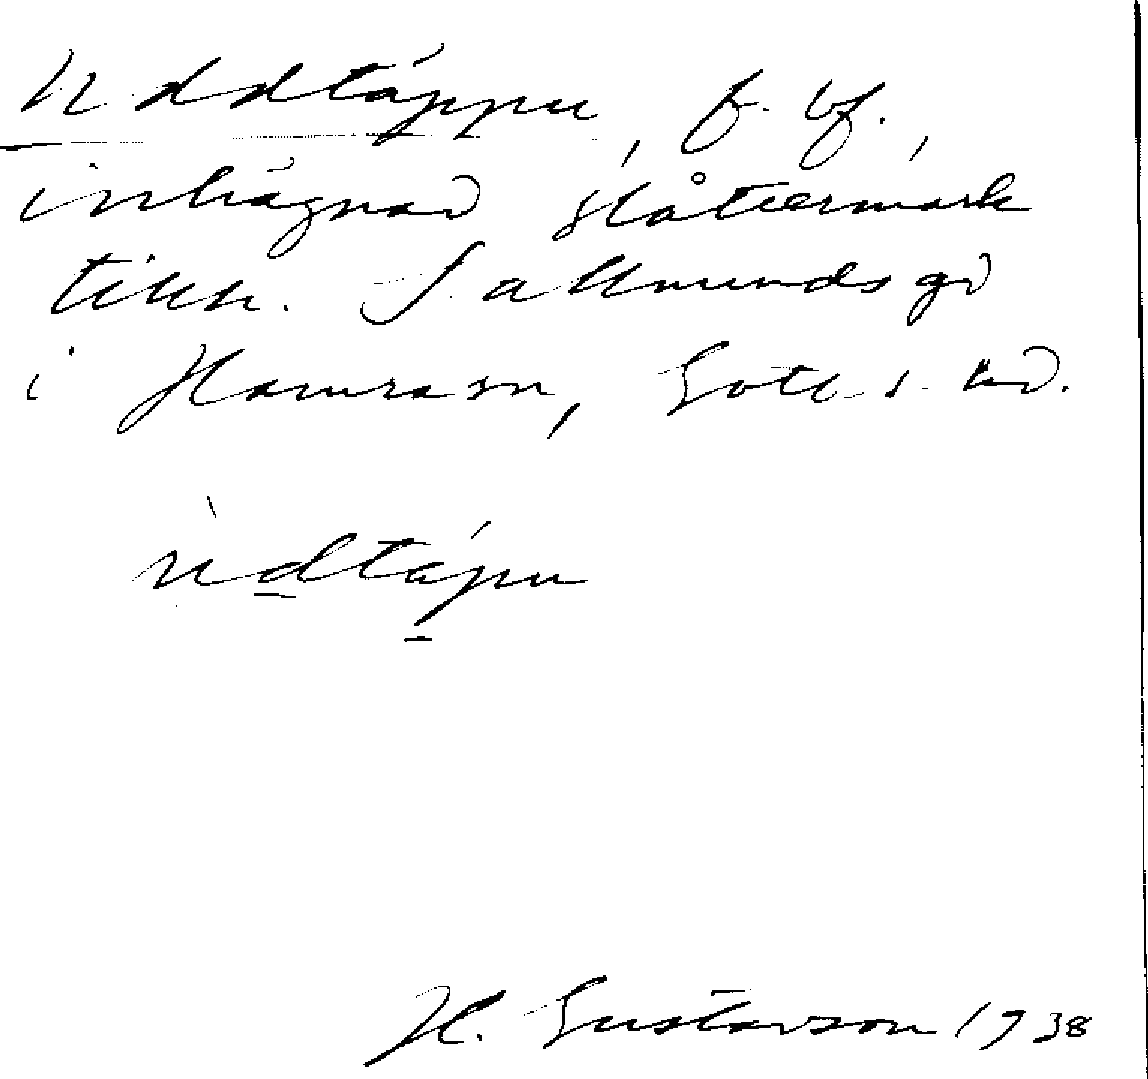 Uddtäppu, f. bf.,
inhägnad slåttermark
tillh. Sallmunds gd
i Hamra sn, Gotl. s. hd.
ùdtápu
H. Gustavson 1938